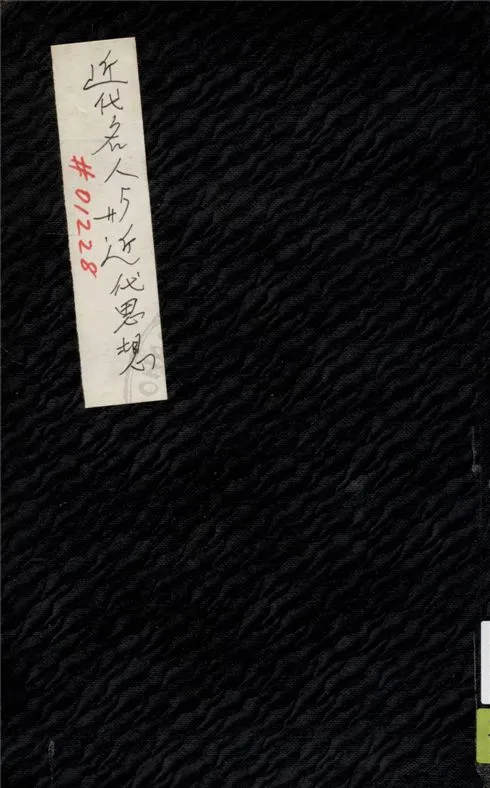 近代名人与近代思想
#01228